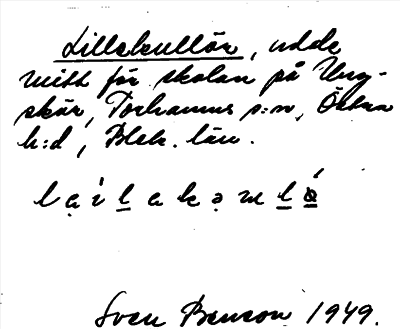 Lillakullör, udde
mitt för skolan på Ung-
skär, Torhamns s:n, Östra
h:d, Blek. län.
Sven Benson 1949.